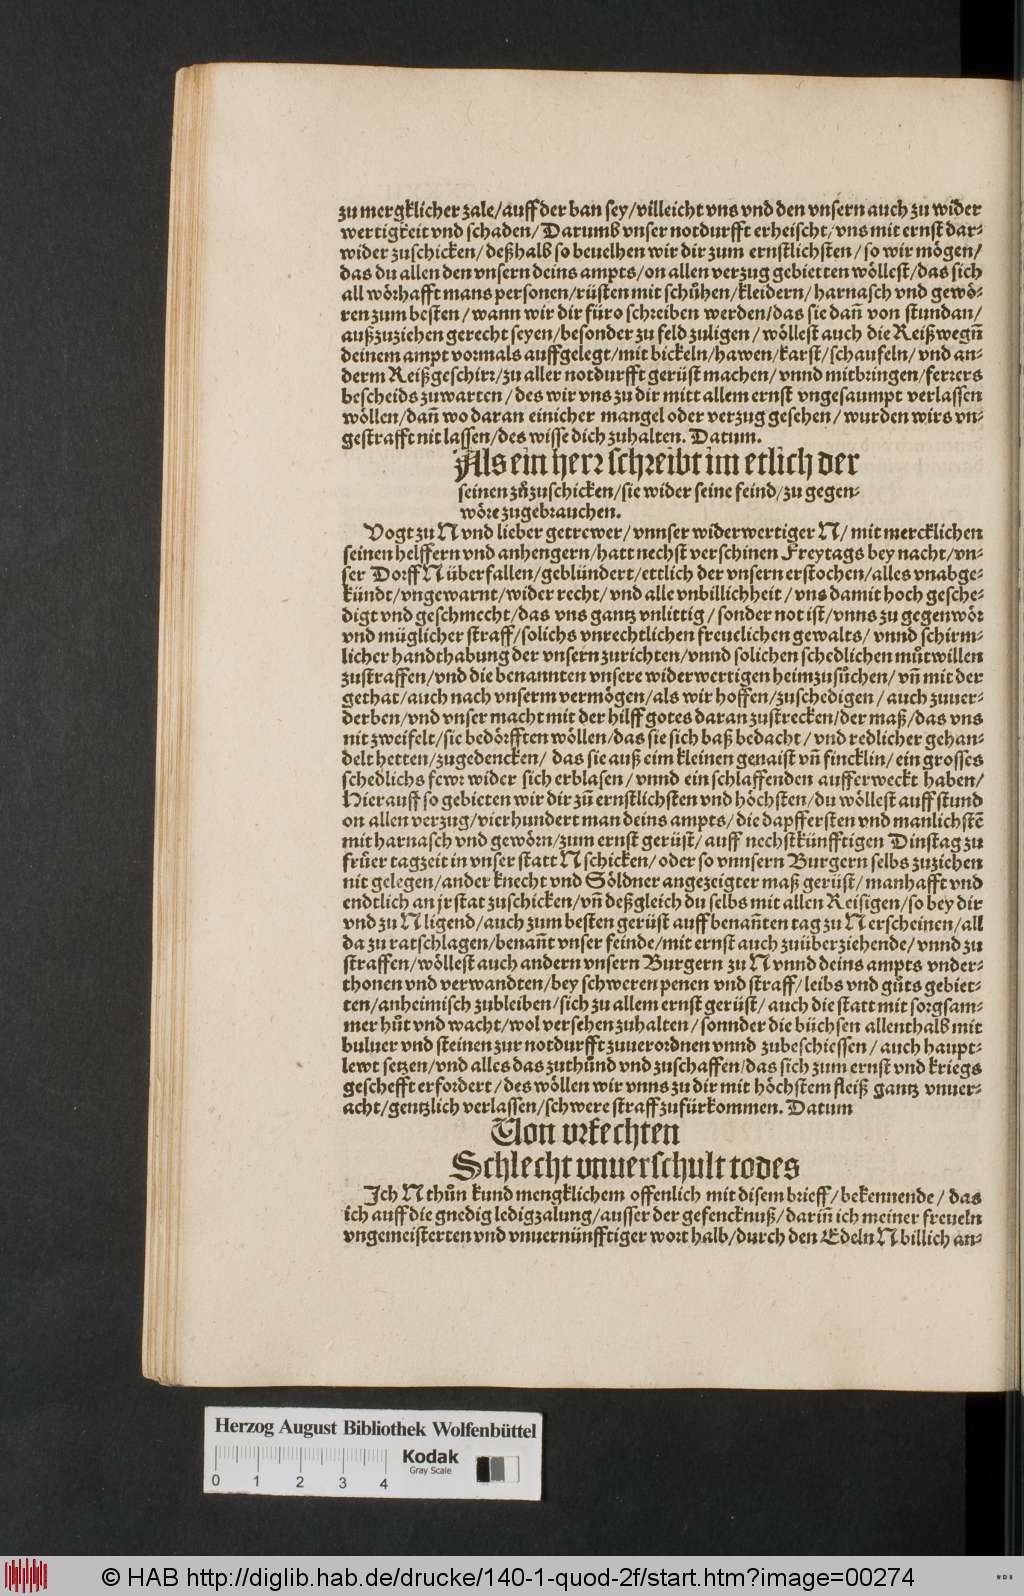 zu mergklicher zale/auff der ban sey/villeicht vns vnd den vnsern auch zu wider
wertigkeit vnd schaden/Darumb vnser notdurfft erheischt/vns mit ernst dar⸗
wider zuschicken/deßhalb so beuelhen wir dir zum ernstlichsten/so wir mögen/
das du allen den vnsern deins ampts/on allen verzug gebietten wöllest/das sich
all wörhafft mans personen/rüsten mit schůhen/kleidern/harnasch vnd gewö⸗
ren zum besten/wann wir dir füro schreiben werden/das sie dañ von stundan/
außzuziehen gerecht seyen/besonder zu feld zuligen/wöllest auch die Reißwegñ
deinem ampt vormals auffgelegt/mit bickeln/hawen/karst/schaufeln/vnd an⸗
derm Reißgeschirr/zu aller notdurfft gerüst machen/vnnd mitbringen/ferrers
bescheids zuwarten/des wir vns zu dir mitt allem ernst vngesaumpt verlassen
wöllen/dañ wo daran einicher mangel oder verzug gesehen/wurden wirs vn⸗
gestrafft nit lassen/des wisse dich zuhalten. Datum.
Als ein herr schreibt im etlich der
seinen zůzuschicken/sie wider seine feind/zu gegen⸗
wöre zugebrauchen.
Vogt zu N vnd lieber getrewer/vnnser widerwertiger N/mit mercklichen
seinen helffern vnd anhengern/hatt nechst verschinen Freytags bey nacht/vn⸗
ser Dorff N überfallen/geblündert/ettlich der vnsern erstochen/alles vnabge⸗
kündt/vngewarnt/wider recht/vnd alle vnbillichheit/vns damit hoch gesche⸗
digt vnd geschmecht/das vns gantz vnlittig/sonder not ist/vnns zu gegenwör
vnd müglicher straff/solichs vnrechtlichen freuelichen gewalts/vnnd schirm⸗
licher handthabung der vnsern zurichten/vnnd solichen schedlichen můtwillen
zustraffen/vnd die benannten vnsere widerwertigen heimzusůchen/vñ mit der
gethat/auch nach vnserm vermögen/als wir hoffen/zuschedigen/auch zuuer⸗
derben/vnd vnser macht mit der hilff gotes daran zustrecken/der maß/das vns
nit zweifelt/sie bedörfften wöllen/das sie sich baß bedacht/vnd redlicher gehan⸗
delt hetten/zugedencken/das sie auß eim kleinen genaist vñ fincklin/ein grosses
schedlichs fewr wider sich erblasen/vnnd ein schlaffenden aufferweckt haben/
Hierauff so gebieten wir dir zũ ernstlichsten vnd höchsten/du wöllest auff stund
on allen verzug/vierhundert man deins ampts/die dapffersten vnd manlichstẽ
mit harnasch vnd gewörn/zum ernst gerüst/auff nechstkünfftigen Dinstag zu
frůer tagzeit in vnser statt N schicken/oder so vnnsern Burgern selbs zuziehen
nit gelegen/ander knecht vnd Söldner angezeigter maß gerüst/manhafft vnd
endtlich an jr stat zuschicken/vñ deßgleich du selbs mit allen Reisigen/so bey dir
vnd zu N ligend/auch zum besten gerüst auff benañten tag zu N erscheinen/all
da zu ratschlagen/benañt vnser feinde/mit ernst auch zuüberziehende/vnnd zu
straffen/wöllest auch andern vnsern Burgern zu N vnnd deins ampts vnder⸗
thonen vnd verwandten/bey schweren penen vnd straff/leibs vnd gůts gebiet⸗
ten/anheimisch zubleiben/sich zu allem ernst gerüst/auch die statt mit sorgsam⸗
mer hůt vnd wacht/wol versehen zuhalten/sonnder die büchsen allenthalb mit
buluer vnd steinen zur notdurfft zuuerordnen vnnd zubeschiessen/auch haupt⸗
lewt setzen/vnd alles das zuthůnd vnd zuschaffen/das sich zum ernst vnd kriegs
geschefft erfordert/des wöllen wir vnns zu dir mit höchstem fleiß gantz vnuer⸗
acht/gentzlich verlassen/schwere straff zufürkommen. Datum
Von vrfechten
Schlecht vnuerschult todes
Ich N thůn kund mengklichem offenlich mit disem brieff/bekennende/das
ich auff die gnedig ledigzalung/ausser der gefencknuß/dariñ ich meiner freueln
vngemeisterten vnd vnuernünfftiger wort halb/durch den Edeln N billich an⸗
Herzog August Bibliothek Wolfenbüttel
Kodak
Gray Scale
0 1 2 3 4
© HAB http://diglib.hab.de/drucke/140-1-quod-2f/start.htm?image=00274